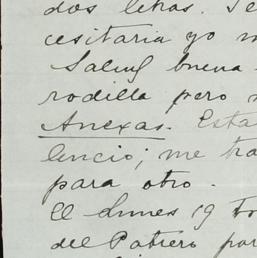 dos letras. Te
cesitaria yo
Salud buena
rodilla pero
Anexas. Esta
lencio; me tra
para otro.
El Lunes 19 to
del Potrero por